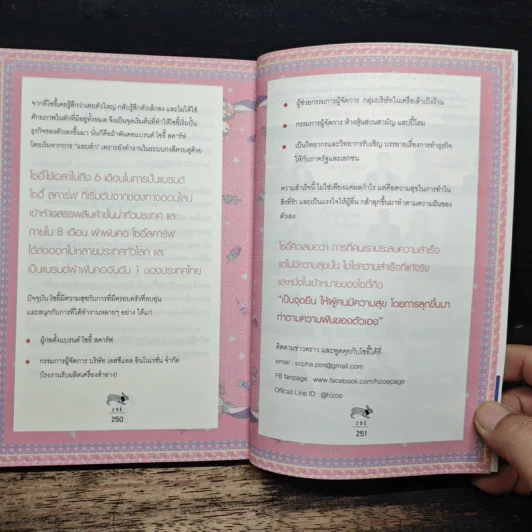 จากที่โซอี้เคยรู้สึกว่าเคยตัวใหญ่ กลับรู้สึกตัวเล็กลง และไม่ได้ใช้
ศักยภาพในตัวที่มีอยู่ทั้งหมด จึงเป็นจุดเริ่มต้นที่ทำให้โซอี้เริ่มปั้น
ธุรกิจของตัวเองขึ้นมา นั่นก็คือผ้าพันคอแบรนด์ โซอี้ สคาร์ฟ
โดยเริ่มจากการ "แอบทำ" เพราะยังทำงานในระบบกงสีควบคู่ด้วย
โซอี้ใช้เวลาไม่ถึง 6 เดือนในการปั้นแบรนด์
โซอี้ สคาร์ฟ ที่เริ่มต้นจากช่องทางออนไลน์
เข้าห้างสรรพสินค้าชั้นนำทั่วประเทศ และ
ภายใน 8 เดือน ผ้าพันคอ โซอี้สคาร์ฟ
ได้ส่งออกไปหลายประเทศทั่วโลก และ
เป็นแบรนด์ผ้าพันคออันดับ 1 ของประเทศไทย
ปัจจุบัน โซอี้มีความสุขกับการที่มีครอบครัวที่อบอุ่น
และสนุกกับการที่ได้ทำงานหลายๆ อย่าง ได้แก่
ผู้ก่อตั้งแบรนด์ โซอี้ สคาร์ฟ
กรรมการผู้จัดการ บริษัท เอสซีแอล อินโนเวชั่น จำกัด
(โรงงานรับผลิตเครื่องสำอาง)
ZOÉ
250
ผู้ช่วยกรรมการผู้จัดการ กลุ่มบริษัทในเครือเล้าเป้งง้วน
กรรมการผู้จัดการ ห้างหุ้นส่วนสามัญ แฮปปี้โฮม
เป็นวิทยากรและวิทยากรรับเชิญ บรรยายเรื่องการทำธุรกิจ
ให้กับภาครัฐและเอกชน
ความสำเร็จนี้ ไม่ใช่เพียงแค่ผลกำไร แต่คือความสุขในการทำใน
สิ่งที่รัก และเป็นแรงใจให้ผู้อื่น กล้าลุกขึ้นมาทำตามความฝันของ
ตัวเอง
โซอี้คิดเสมอว่า การที่คนเราประสบความสำเร็จ
แต่ไม่มีความสุขนั้น ไม่ใช่ความสำเร็จที่แท้จริง
และหนึ่งในเป้าหมายของโซอี้คือ
"เป็นจุดยืน ให้ผู้คนมีความสุข โดยการลุกขึ้นมา
ทำตามความฝันของตัวเอง"
ติดตามข่าวคราว และพูดคุยกับโซอี้ได้ที่
email : sopha.pim@gmail.com
FB fanpage : www.facebook.com/hizoepage
Official Line ID : @hizoe
ZOÉ
251